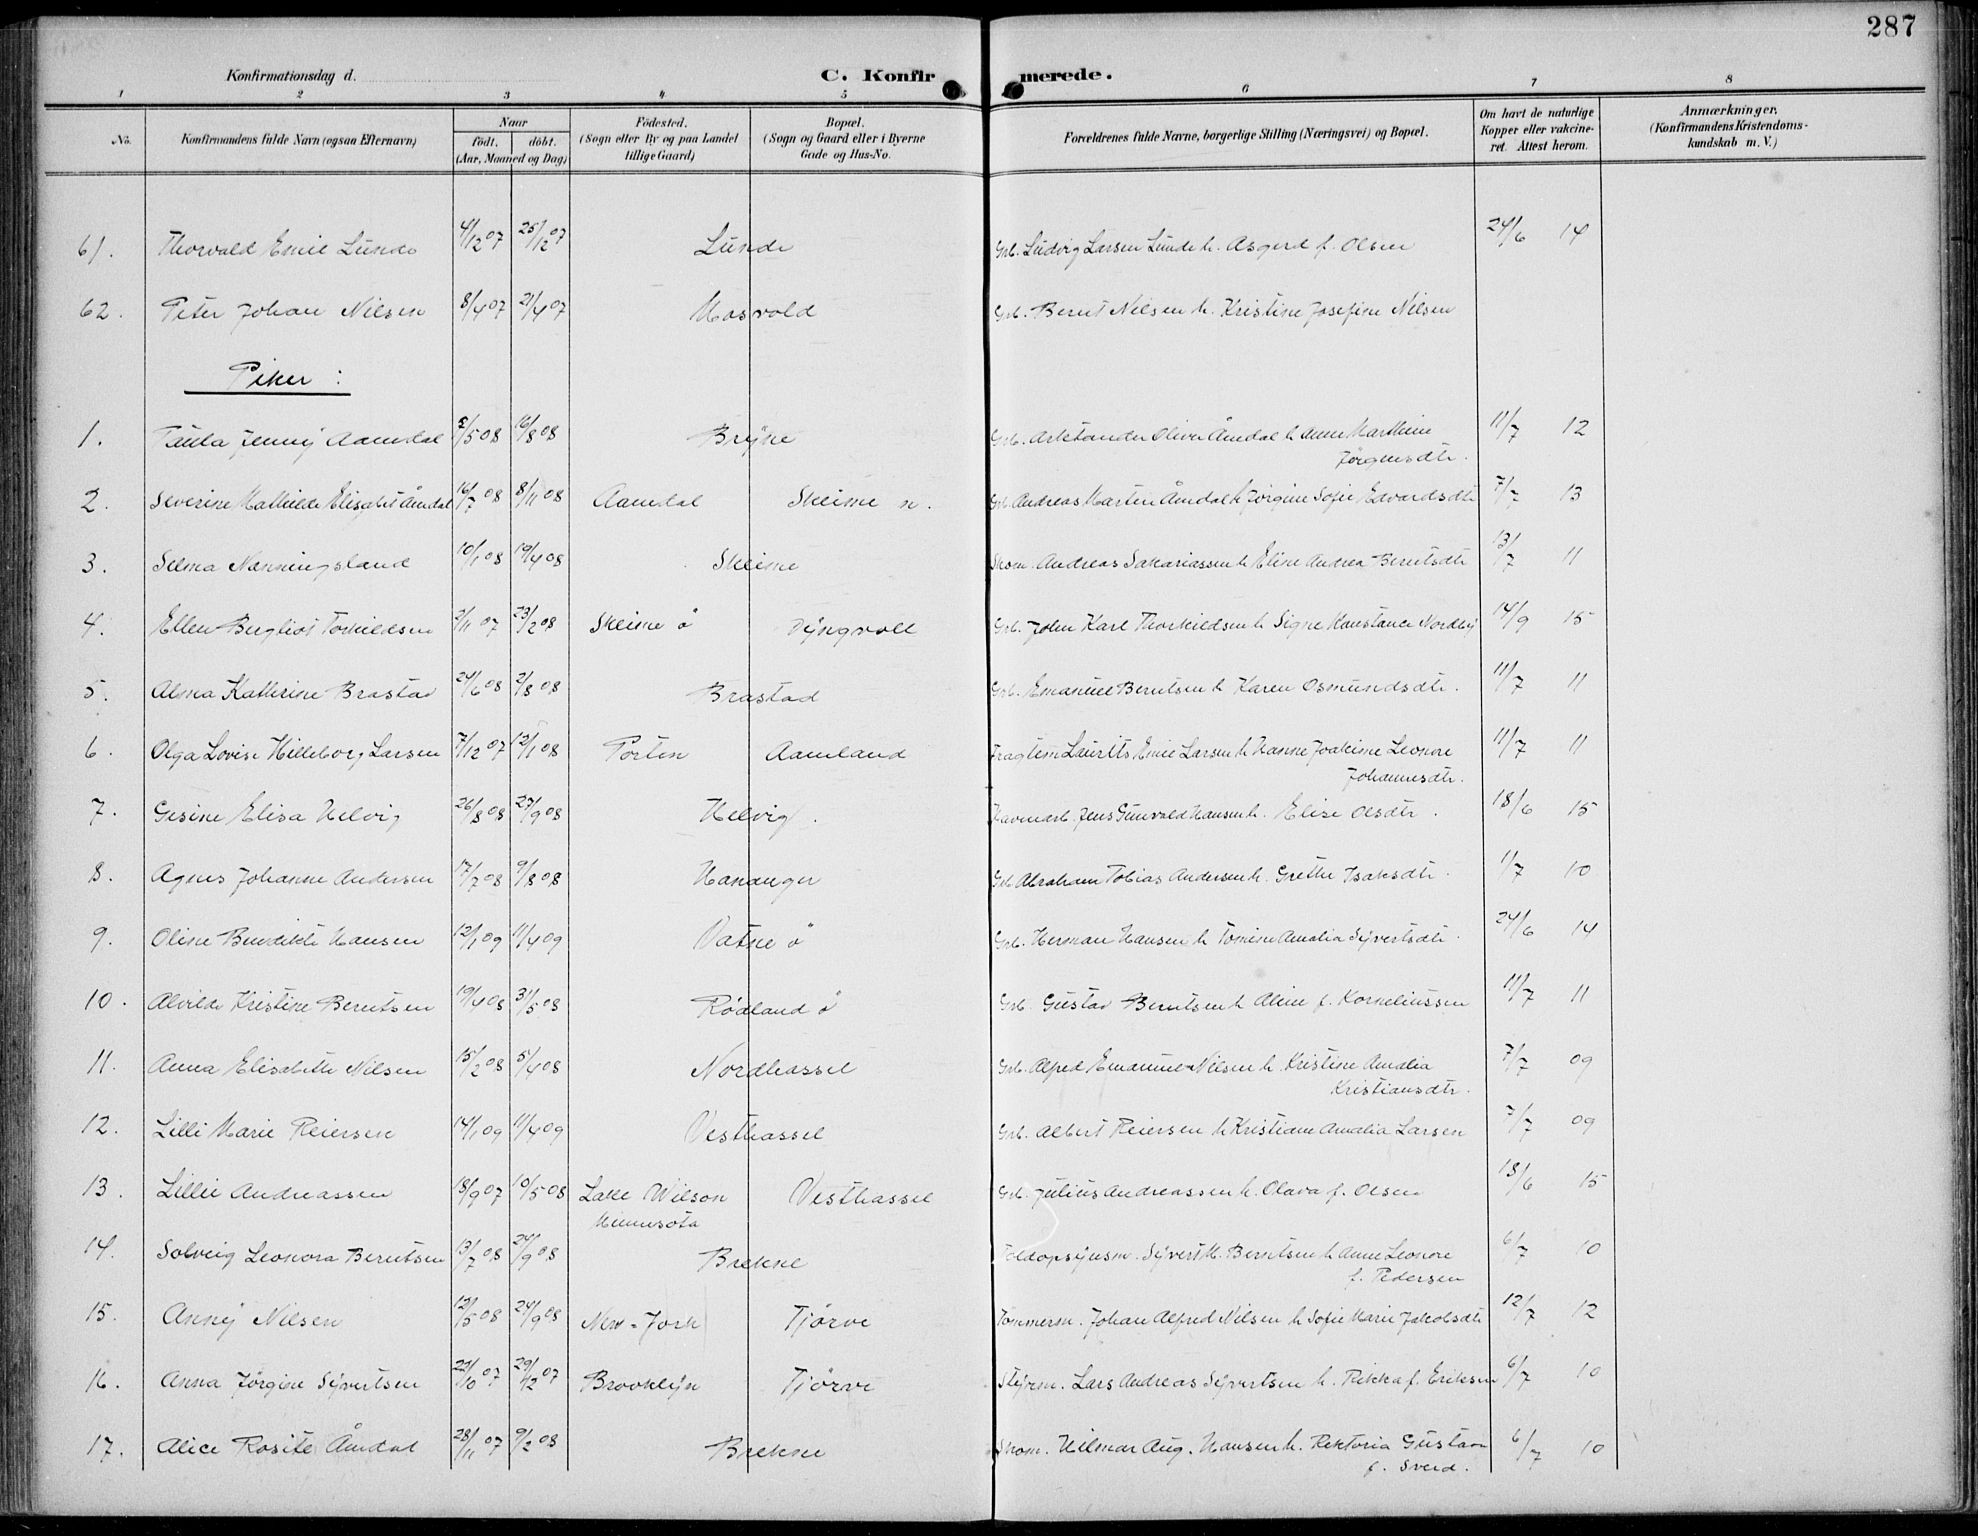 287
Konfirmationsdag d. C. Konfirmerede.
1 2 3 4 5 6 7 8
No. Konfirmandens fulde Navn (ogsaa Efternavn) Naar født. døbt. (Aar, Maaned og Dag) Fødested. (Sogn eller By og paa Landet tillige Gaard) Bopæl. (Sogn og Gaard eller i Byerne Gade og Hus-No. Forældrenes fulde Navne, borgerlige Stilling (Næringsvei) og Bopæl. Om havt de naturlige Kopper eller vakcineret. Attest herom. Anmærkninger. (Konfirmandens Kristendomskundskab m. V.)
61. Thorvald Emil Lunde 4/12 07 25/12 07 Lunde Grb. Ludvig Larsen Lunde h. Asgerd f. Olsen 24/6 14
62. Peter Johan Nilsen 8/4 07 21/4 07 Mosvold Grb. Bernt Nilsen h. Kristine Josefine Nilsen
Piker :
1. Paula Jenny Aamdal 2/5 08 16/8 08 Bryne Grb. Oliver Åmdal h Anne Marthine Jørgensdtr. 11/7 12
2. Severine Mathilde Elisabet Åmdal 16/7 08 8/11 08 Aamdal Skeime n. Grb. Andreas Martin Åmdal h Jørgine Sofie Edvardsdtr 7/7 13
3. Selma Nenningsland 10/1 08 19/4 08 Skeime Skom. Andreas Sakariassen h Eline Andrea Berntsdtr 13/7 11
4. Ellen Bergliot Torkildsen 2/11 07 23/2 08 Skeime ø Dyngvoll Grb. John Karl Thorkildsen h Signe Konstance Nordby 14/9 15
5. Alma Kathrine Brastad 24/6 08 2/8 08 Brastad Grb. Emanuel Berntsen h Karen Osmundsdtr. 11/7 11
6. Olga Lovise Hilleborg Larsen 7/12 07 12/1 08 Porten Aamland Fragtem Laurits Emil Larsen h Hanne Joakime Leonore Johannesdtr. 11/7 11
7. Gesine Elisa Helvig 26/8 08 27/9 08 Helvig. Havnarb. Jens Gunvald Hansen h. Elise Olsdtr. 18/6 15
8. Agnes Johanne Andersen 17/7 08 9/8 08 Hananger Grb Abraham Tobias Andersen h. Grethe Isaksdtr. 1/7 10
9. Oline Benedikte Hansen 12/1 09 11/4 09 Vatne ø Grb. Herman Hansen h Tomine Amalia Syvertsdtr. 24/6 14
10. Alvilde Kristine Berntsen 19/4 08 31/5 08 Rødland ø Grb. Gustav Berntsen h Aline f. Korneliussen 11/7 11
11. Anna Elisabeth Nilsen 15/2 08 5/4 08 Nordhassel Grb. Alfred Emanuel Nilsen h. Kristine Amalia Kristiansdtr. 7/7 09
12. Lilli Marie Reiersen 14/1 09 11/4 09 Vesthassel Grb. Albert Reiersen h Kristiane Amalia Larsen 7/7 09
13. Lillie Andreassen 18/9 07 10/5 08 Lake Wilson Minnesota Vesthassel Grb. Julius Andreassen h. Olava f. Olsen 18/6 15
14. Solveig Leonora Berntsen 13/7 08 24/9 08 Brekne Toldopsynsm. Syvert M. Berntsen h Anne Leonore f. Pedersen 6/7 10
15. Anny Nilsen 12/5 08 24/9 08 New-York Tjørve Tømmerm. Johan Alfred Nilsen h Sofie Marie Jakobsdtr 12/7 12
16. Anna Jørgine Syvertsen 22/10 07 29/12 07 Brooklyn Tjørve Styrm. Lars Andreas Syvertsen h. Rikka f. Eriksen 6/7 10
17. Alice Rosite Åmdal 28/11 07 9/2 08 Brekne Skom. Hilmar Aug. Hansen h. Rektoria Gustava f. Sverd. 6/7 10